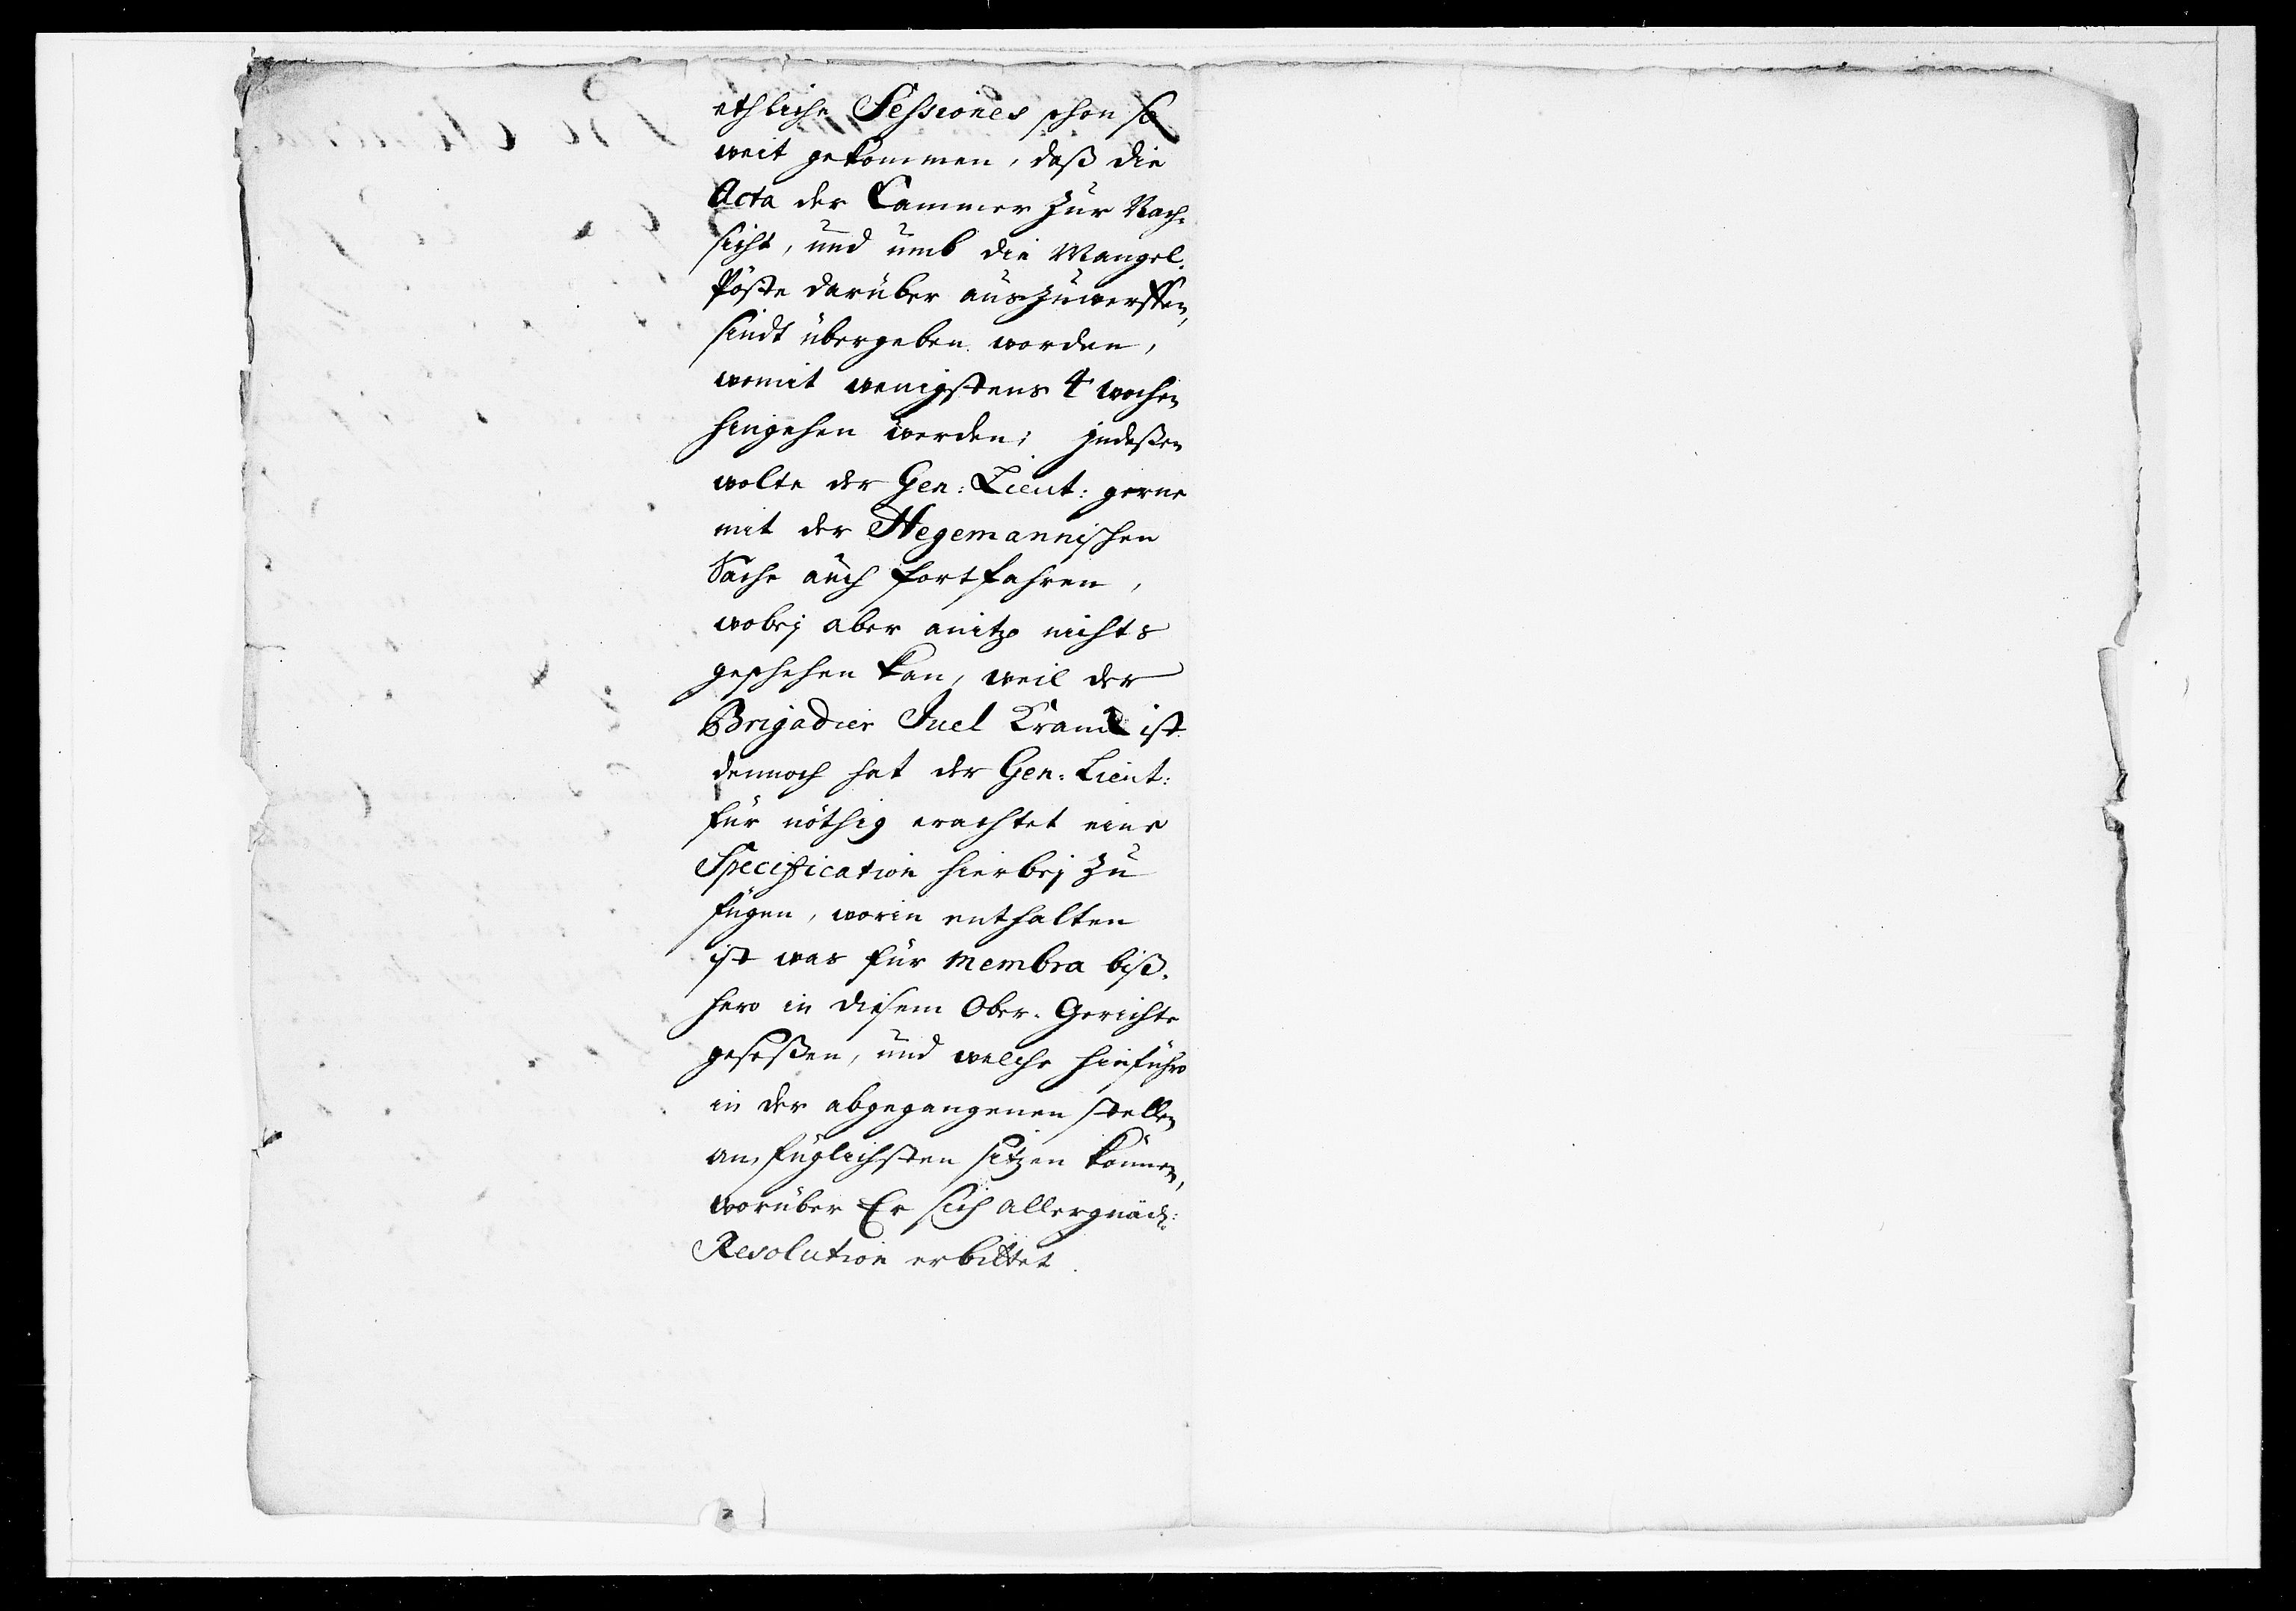 ethliche Sessiones schon so
weit gekommen, daß die
Acta der Cammer zur Nach-
sicht, und umb die Mangel-
Pöste darüber auszuwerffen,
sindt übergeben worden,
womit wenigstens 4 wochen
hingehen werden; jndeßen
wolte der Gen: Lieut: gerne
mit der Hegemannischen
Sache auch fortfahren,
wobej aber anitzo nichts
geschehen kan, weil der
Brigadier Juel Kranck ist
dennoch hat der Gen: Lieut:
für nöthig erachtet eine
Specification hierbej zu
fügen, worin enthalten
ist was für Membra biß-
hero in diesem Ober-Gerichte
geseßen, und welche hinführo
in der abgegangenen stellen
am füglichsten sitzen können,
worüber Er sich allergnäd:
Resolution erbittet.